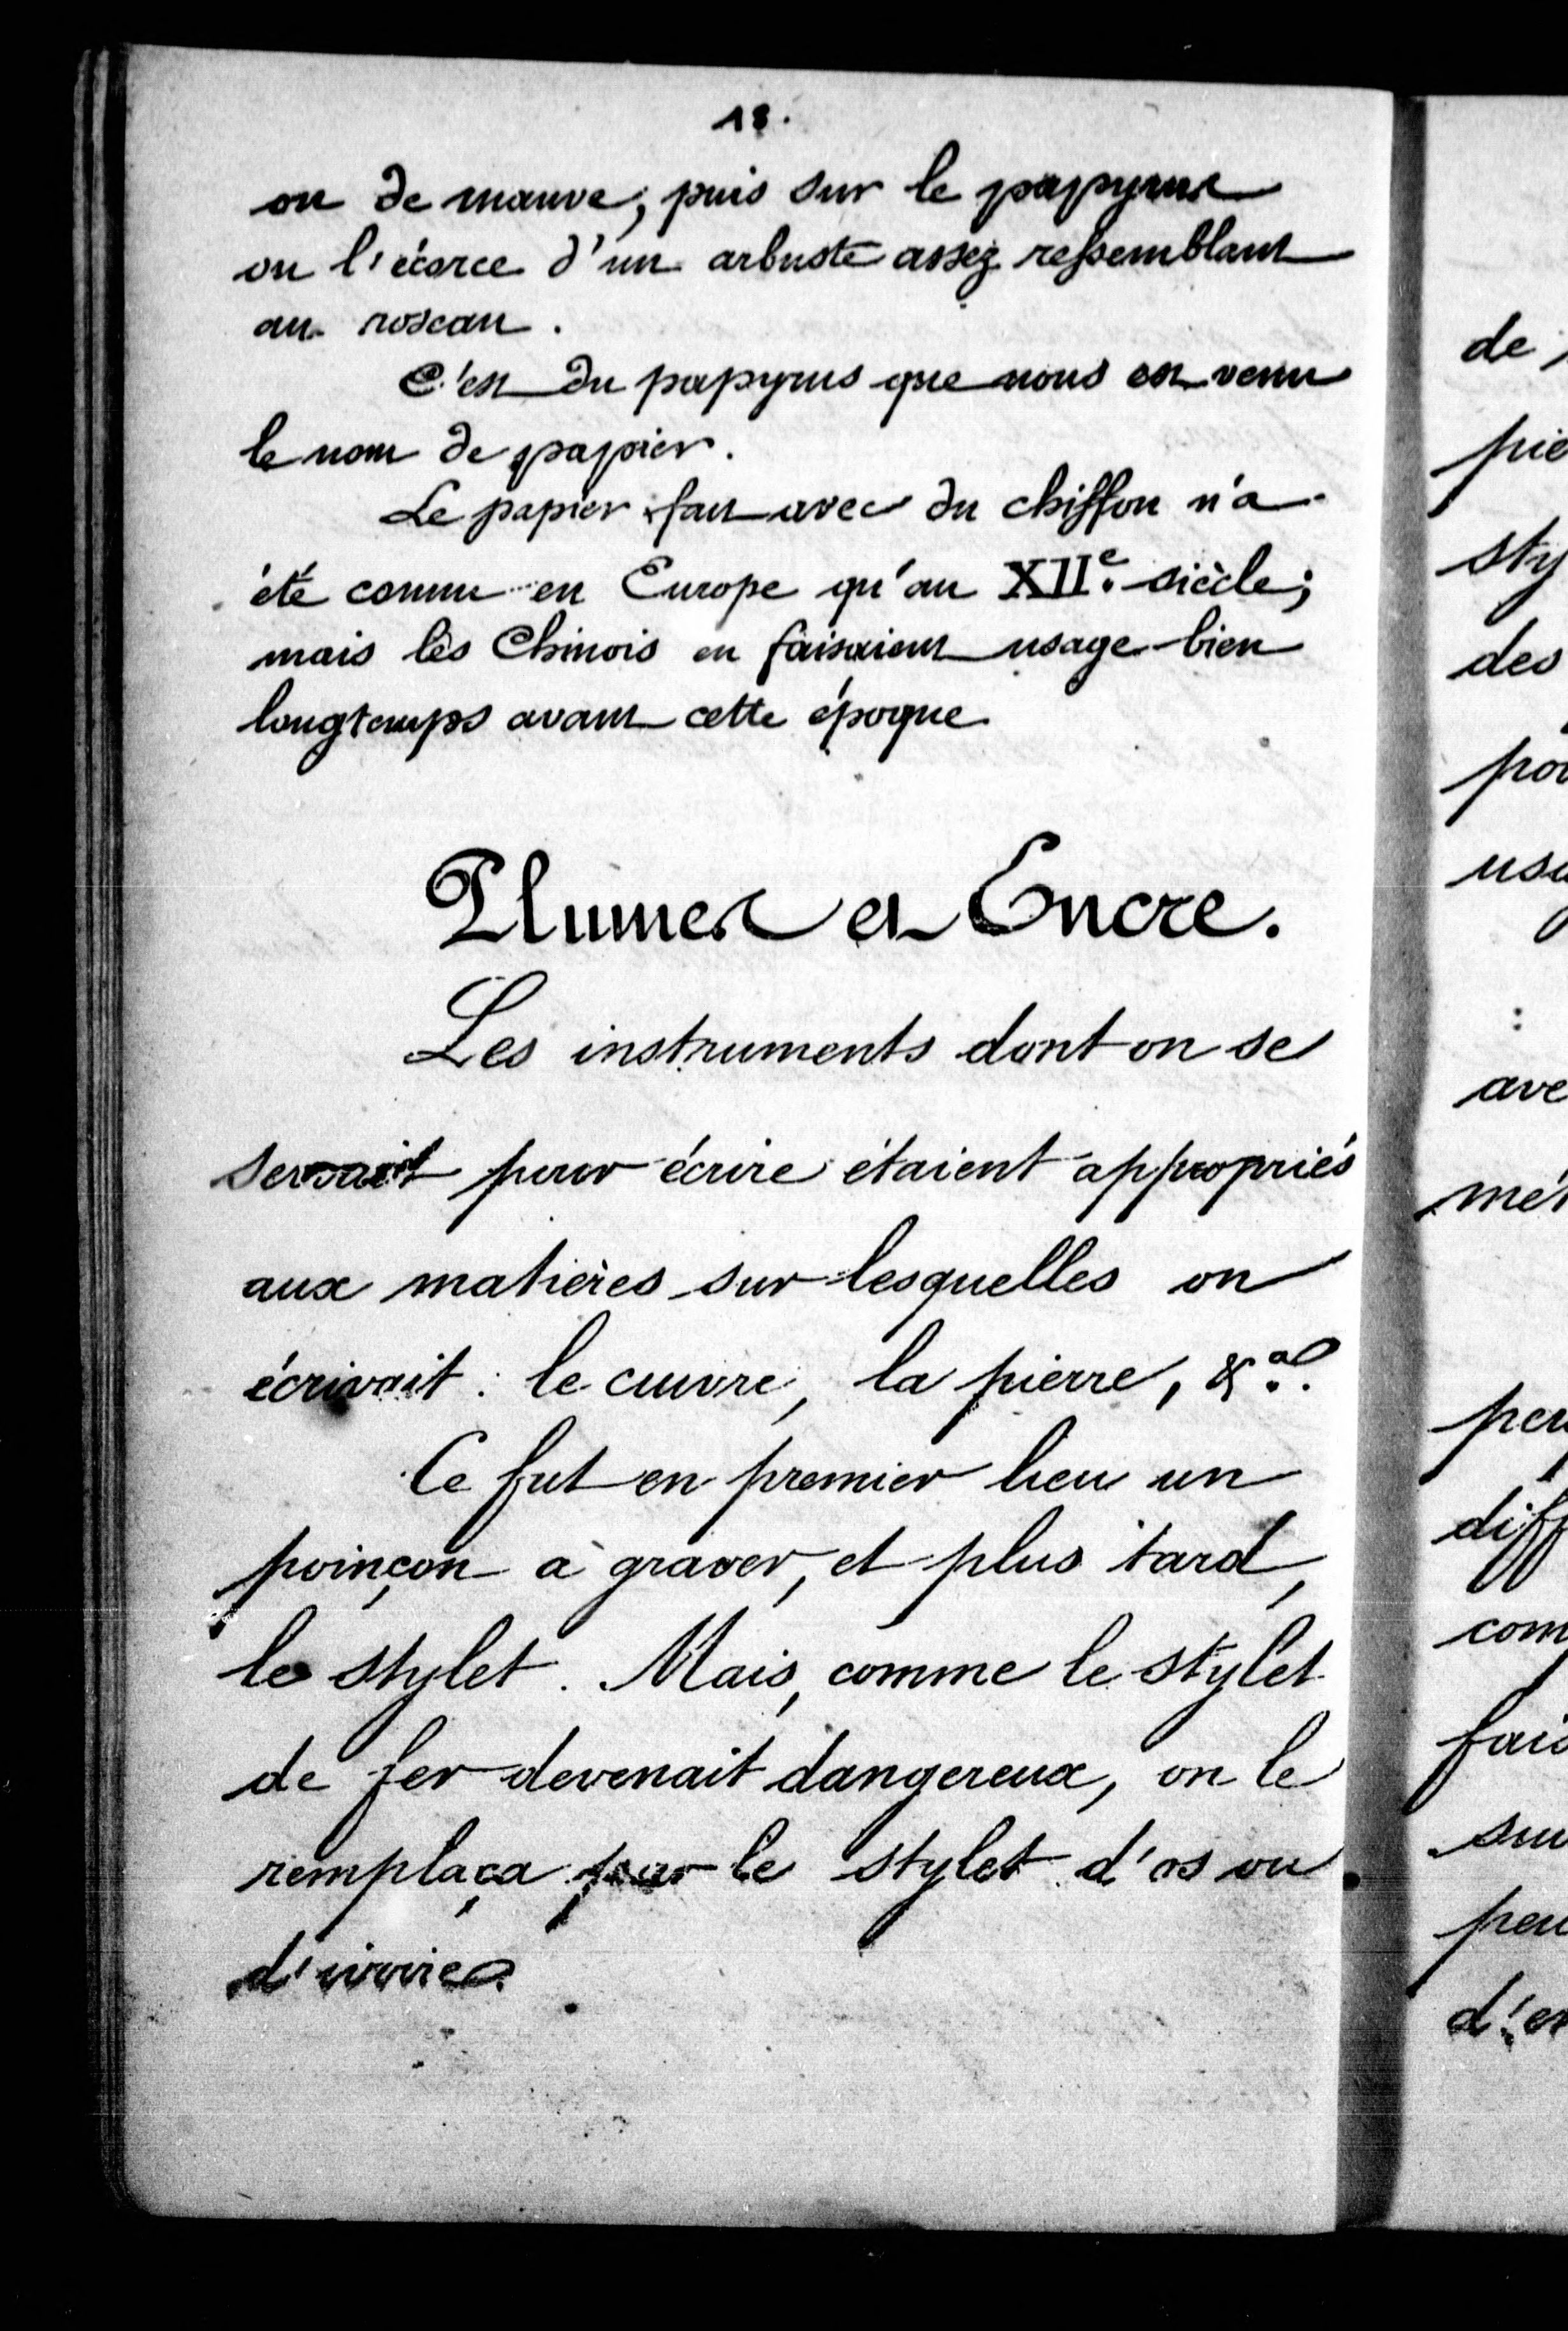 18.
ou de mauve, puis sur le papyrus
ou l'écorce d'un arbuste assez ressemblant
au roseau.
C'est du papyrus que nous est venu
le nom de papier.
Le papier fait avec du chiffon n'a
été connu en Europe qu'au XIIe. siècle;
mais les Chinois en faisaient usage bien
longtemps avant cette époque
Plumes et Encre.
Les instruments dont on se
servait pour écrire étaient appropriés
aux matières sur lesquelles on
écrivait: le cuivre, la pierre, &a.
Ce fut en premier lieu un
poinçon à graver, et plus tard,
le stylet. Mais, comme le stylet
de fer devenait dangereux, on le
remplaça par le stylet d'os ou
d'ivoire.
de
pie
sty
des
pou
usa
:
ave
mét
peu
diff
com
fais
sui
peu
d'en